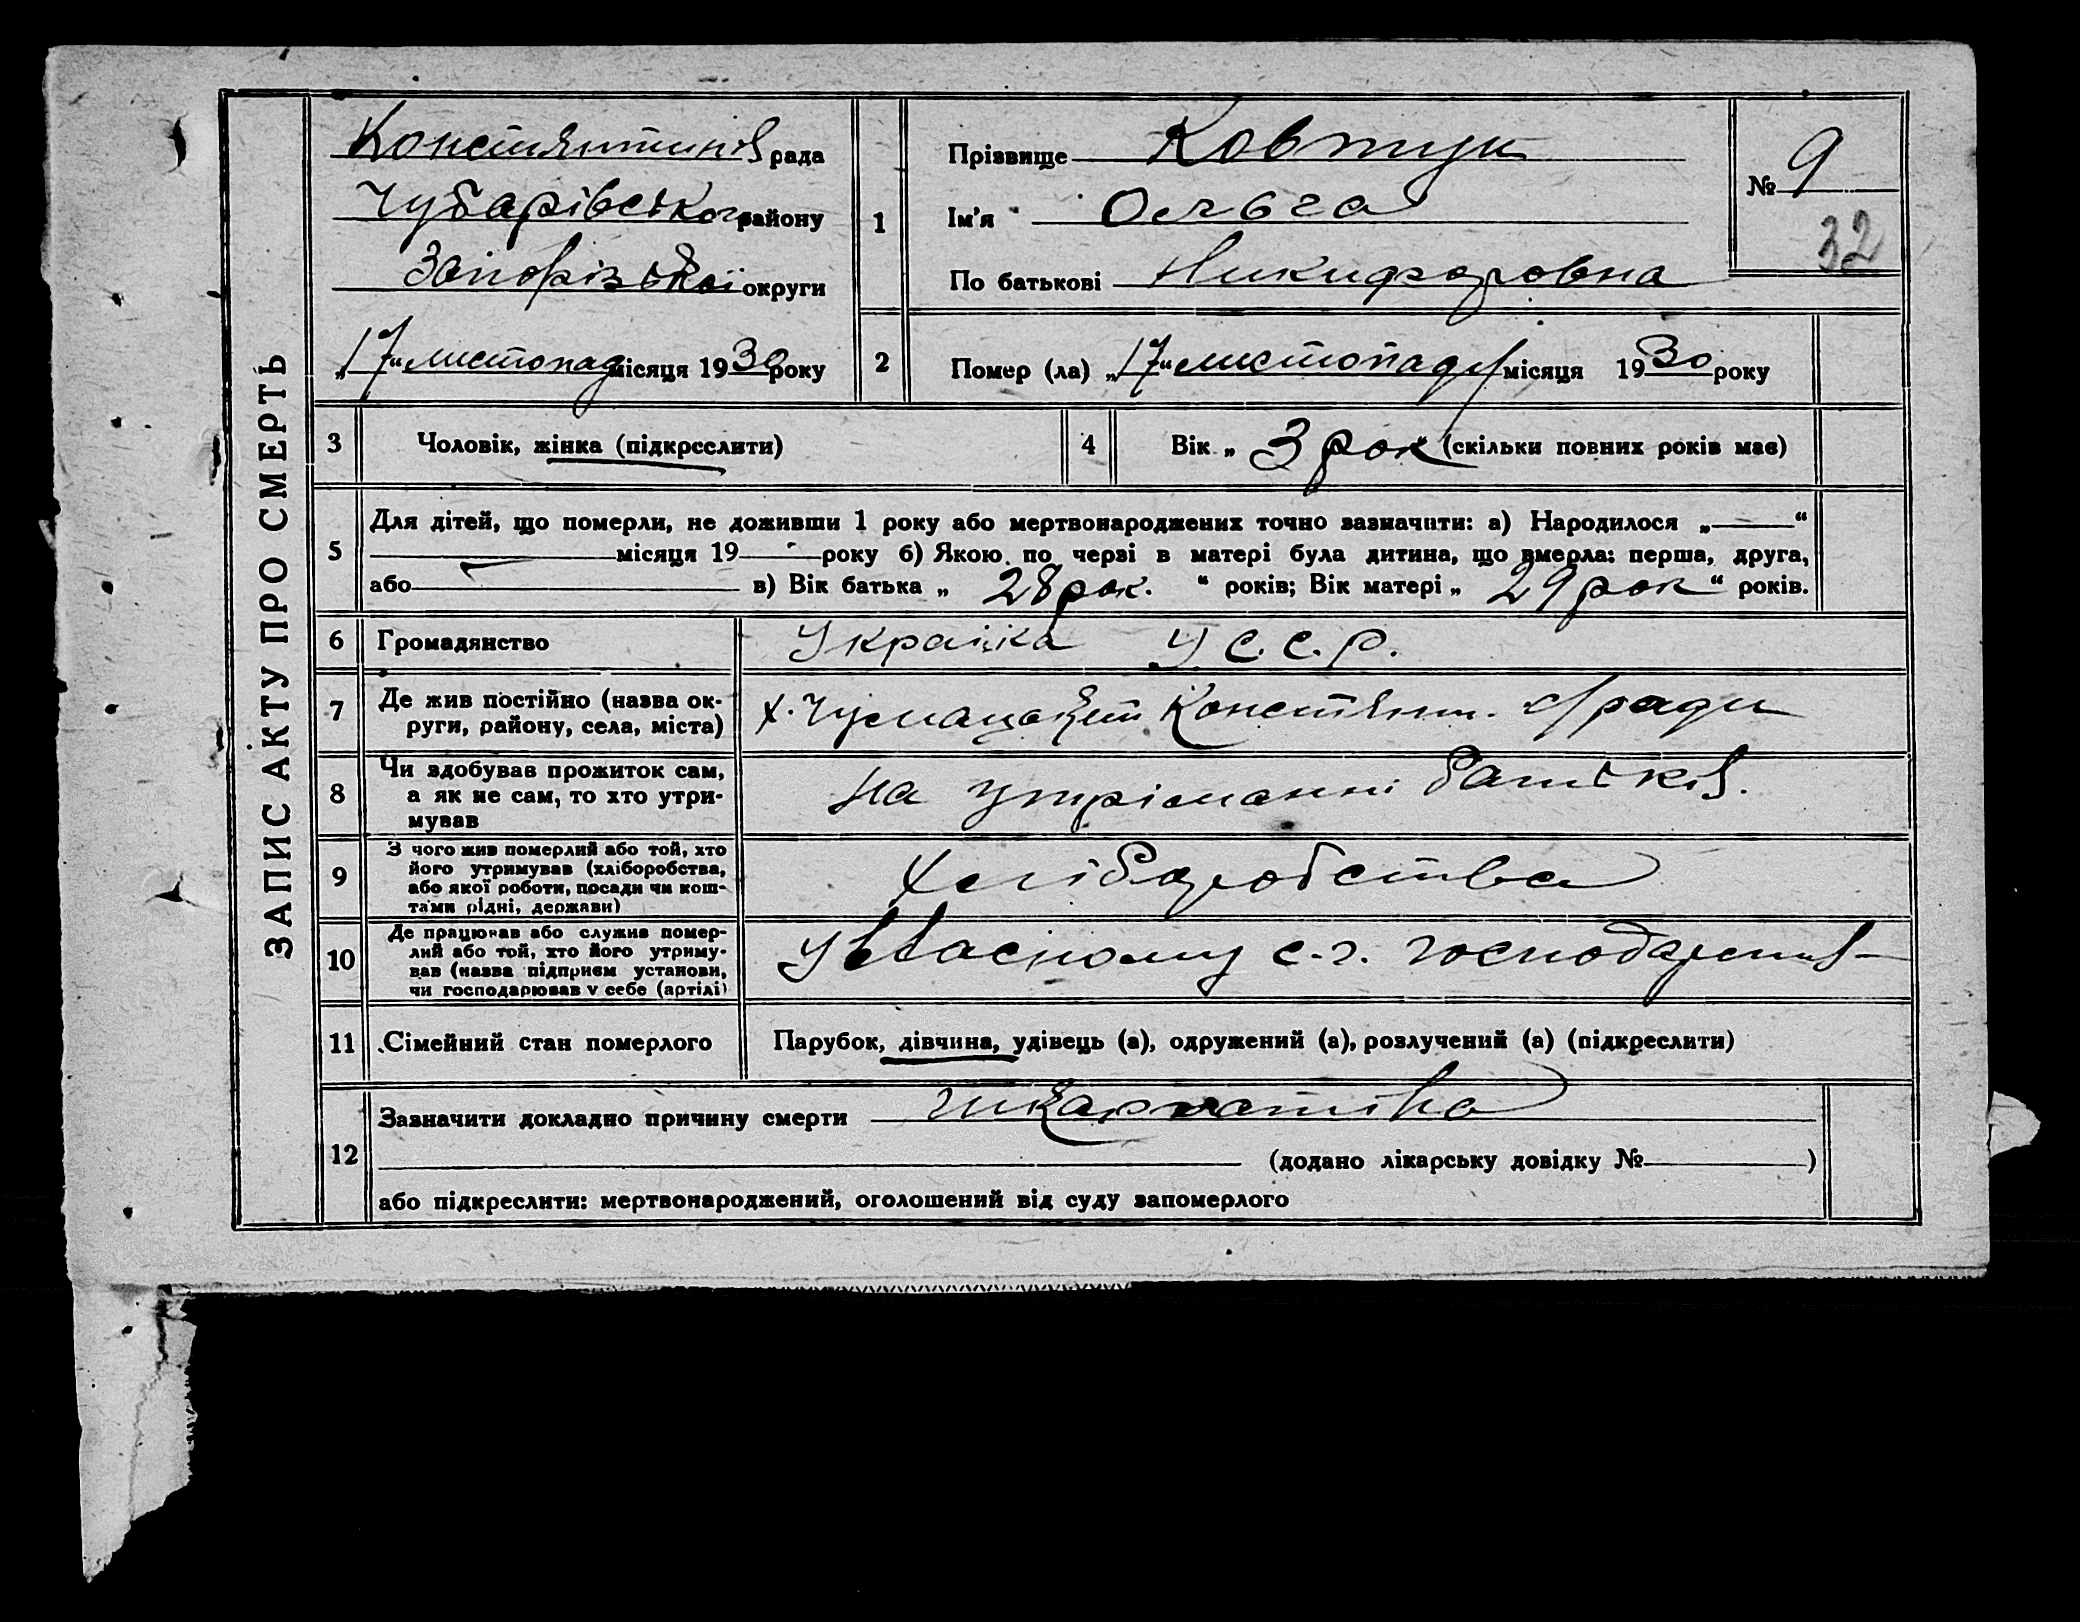 ЗАПИС АКТУ ПРО СМЕРТЬ
Констянтинів рада
Чубарівського району
Запорізької округи
„17“ листопад місяця 1930 року
1
Прізвище Ковтун
Ім'я Ольга
По батькові Никифоровна
№ 9
32
2 Помер (ла) „17“ листопаду місяця 1930 року
3 Чоловік, жінка (підкреслити)
4 Вік „ 3 рок (скільки повних років має)
5
Для дітей, що померли, не доживши 1 року або мертвонароджених точно зазначити: а) Народилося „ “
місяця 19 року б) Якою по черзі в матері була дитина, що вмерла: перша, друга,
або в) Вік батька „ 28 рок. “ років; Вік матері „ 29 рок “ років.
6 Громадянство Українка У С. С. Р.
7 Де жив постійно (назва ок-
руги, району, села, міста)
х. Констянт. с/ради
8 Чи здобував прожиток сам,
а як не сам, то хто утри-
мував
на утріманні батьків.
9 З чого жив померлий або той, хто
його утримував (хліборобства,
або якої роботи, посади чи кош-
тами рідні, держави)
Хліборобства
10 Де працював або служив помер-
лий або той, хто його утриму-
вав (назва підприєм установи,
чи господарював у себе (артілі)
У власному с.-г. господарстві
11 Сімейний стан померлого Парубок, дівчина, удівець (а), одружений (а), розлучений (а) (підкреслити)
12 Зазначити докладно причину смерти шкарлатіна
(додано лікарську довідку № )
або підкреслити: мертвонароджений, оголошений від суду запомерлого